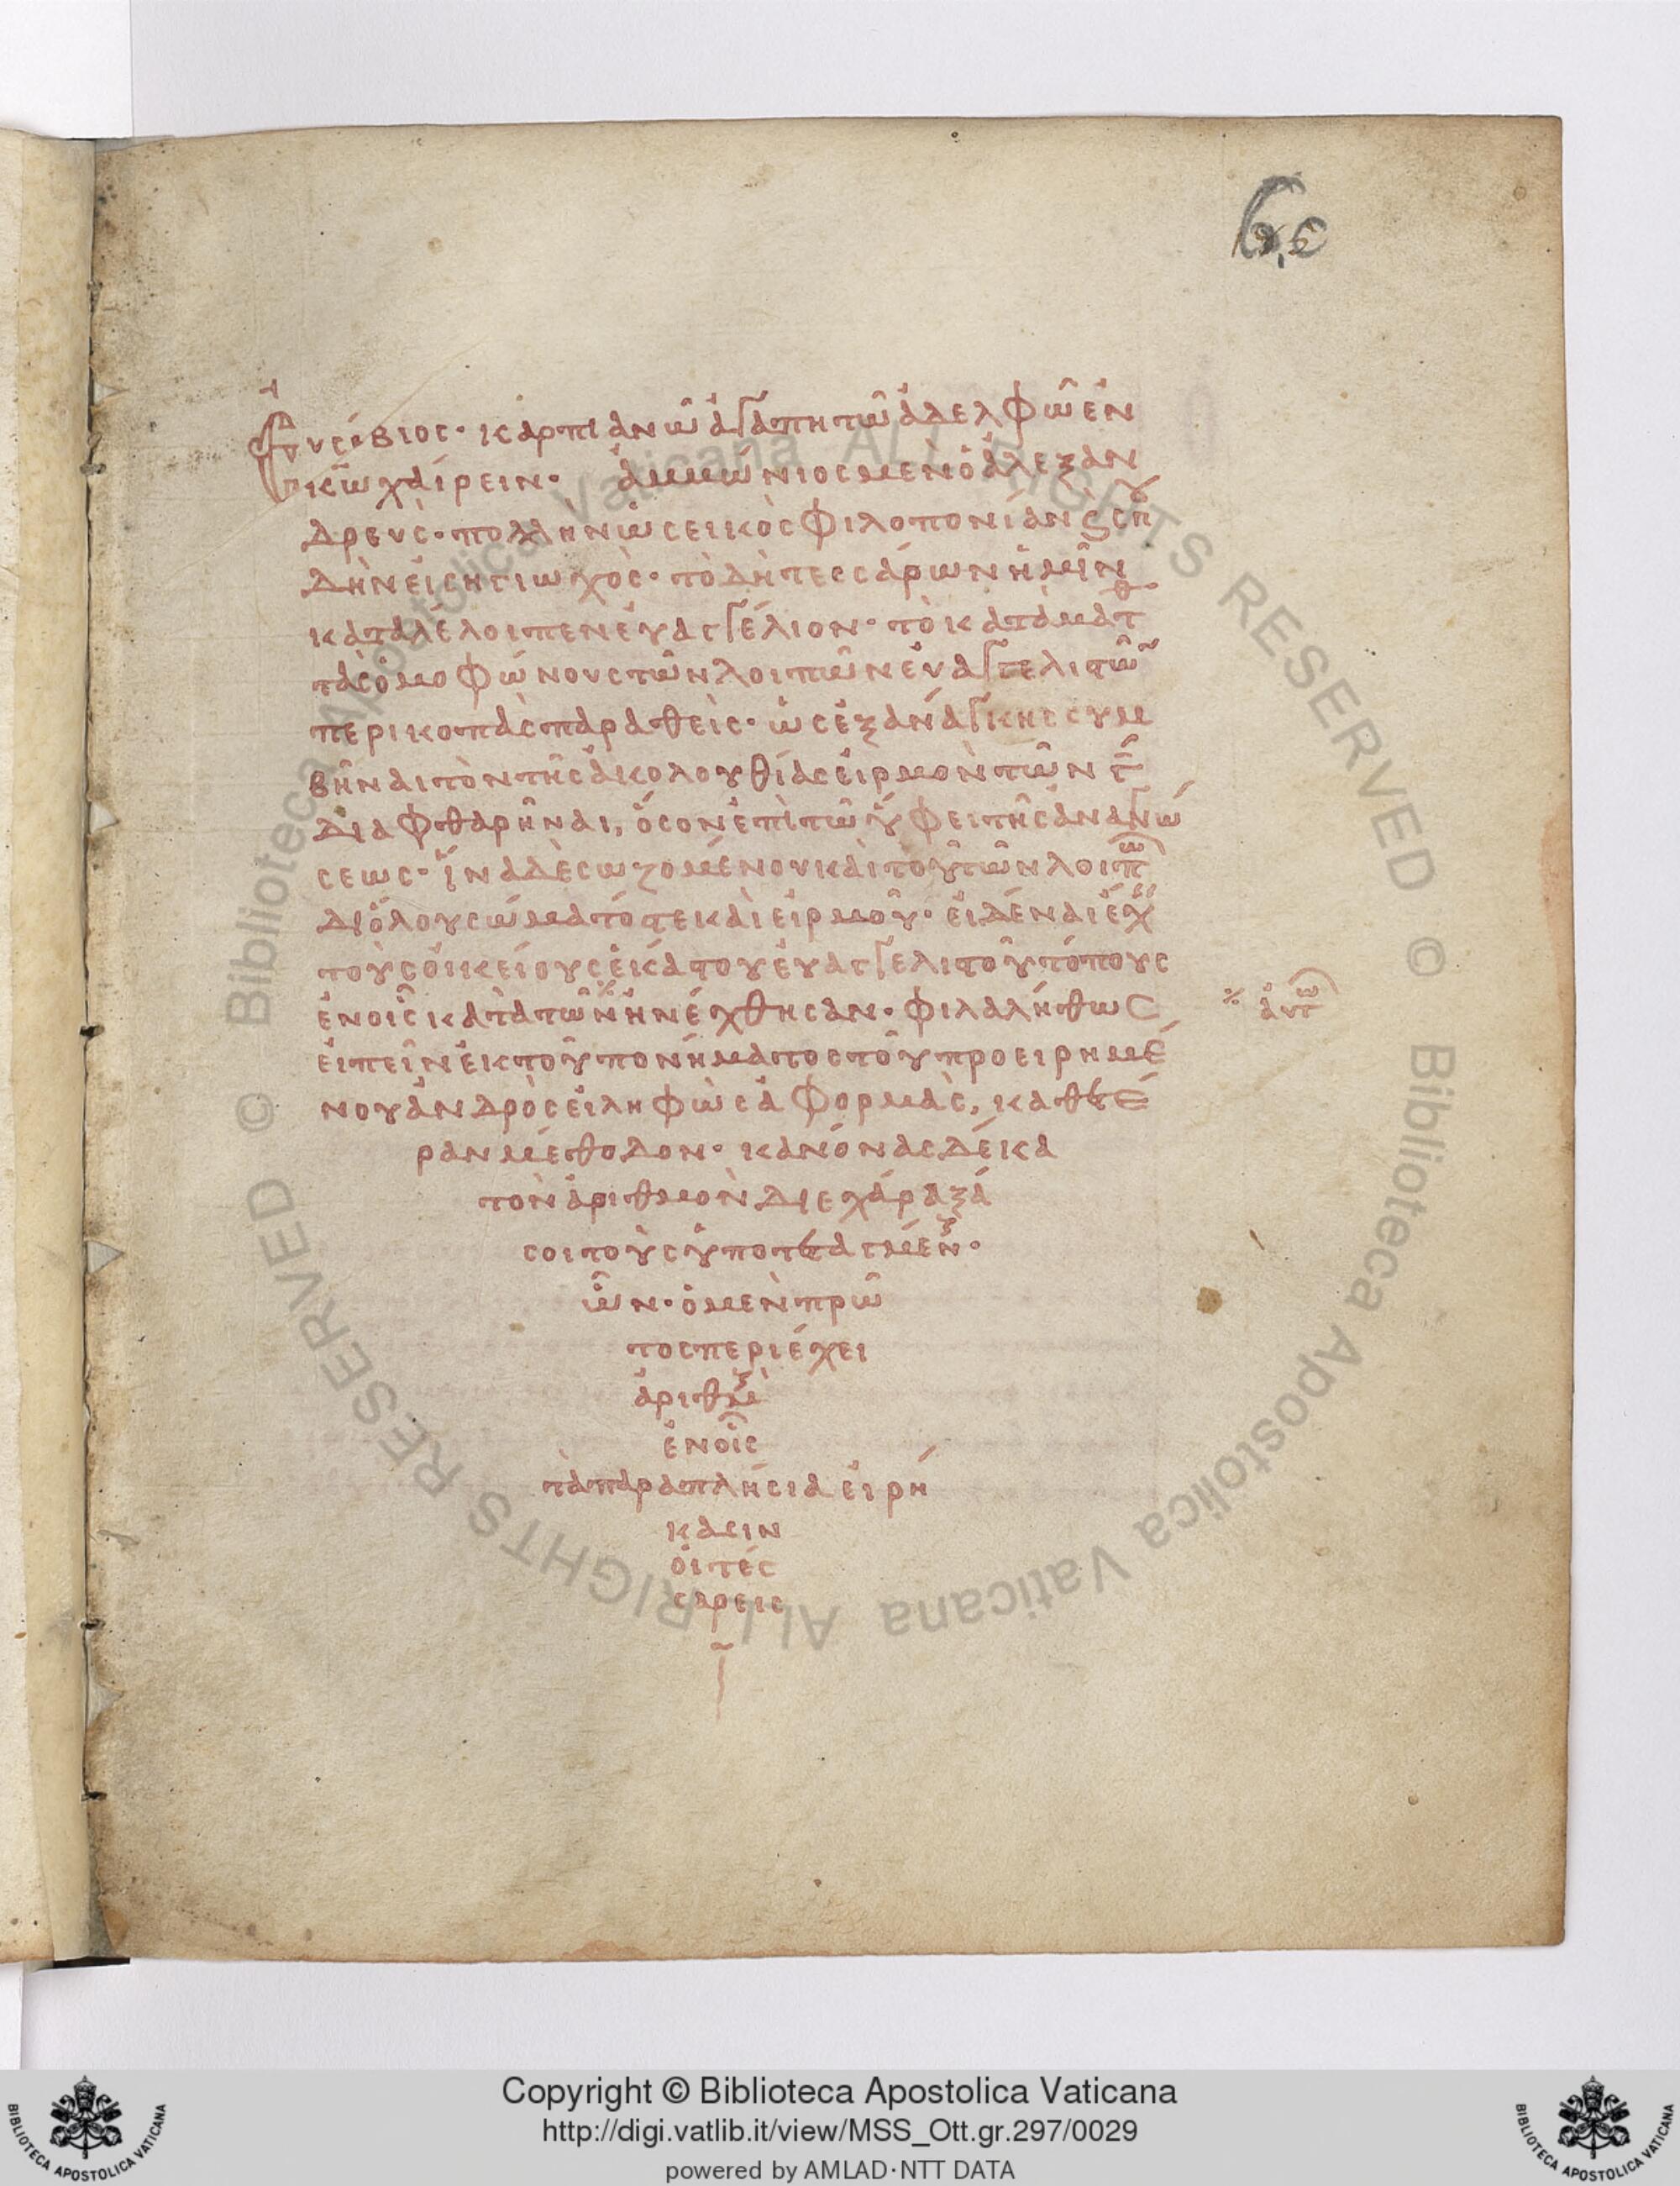 6,5
Ευσέβιος· καρπιανῶ ἀγαπητῶ ἀδελφῶ ἐν
κ̅ω̅ χαίρειν· ἀμμώνιος μὲν ὁ ἀλεξαν
δρεὺς· πολλὴν ὡς εἰκὸς φιλοπονίαν ϗ σπου
δὴν εἰσηγιωχὸς· τὸ δὴ τεσσάρων ἡμῖν
καταλέλοιπεν εὐαγγέλιον· τὸ κατὰ ματθ
τὰς ὁμοφώνους τῶν λοιπῶν εὐαγγελιτῶ
περικοπὰς παραθεὶς· ὡς ἐξ ανάγκης συμ
βῆναι τὸν τῆς ἀκολουθίας εἱρμὸν τῶν τ̅
διαφθαρῆναι, ὅσον ἐπὶ τῶ ὕφει τῆς ἀναγνώ
σεως· ἵνα δὲ σωζομένου καὶ τοῦ τῶν λοιπῶ
δι ὅλου σώματός τε καὶ εἱρμοῦ· εἰδέναι ἔχ
τοὺς οἰκείους ἑκάστου εὐαγγελιτοῦ τόπους
ἐν οἷς κατὰ τῶν ἠνέχθησαν· φιλαλήθως
εἰπεῖν ἐκ τοῦ πονήματος τοῦ προειρημέ
νου ἀνδρὸς εἰληφὼς ἀφορμὰς, καθ ετέ
ραν μέθοδον· κανόνας δέκα
τὸν ἀριθμὸν διεχάραξά
σοι τοὺς ὑποτεταγμέν·
ὧν· ὁ μὲν πρῶ
τος περιέχει
ἀριθμ
ἐν οἷς
τὰ παραπλήσια εἰρή
κασιν
οἱ τές
σαρεις
※ αὐτῶ
Copyright © Biblioteca Apostolica Vaticana
http://digi.vatlib.it/view/MSS_Ott.gr.297/0029
powered by AMLAD·NTT DATA
BIBLIOTECA APOSTOLICA VATICANA
BIBLIOTECA APOSTOLICA VATICANA
© Biblioteca Apostolica Vaticana ALL RIGHTS RESERVED
© Biblioteca Apostolica Vaticana ALL RIGHTS RESERVED